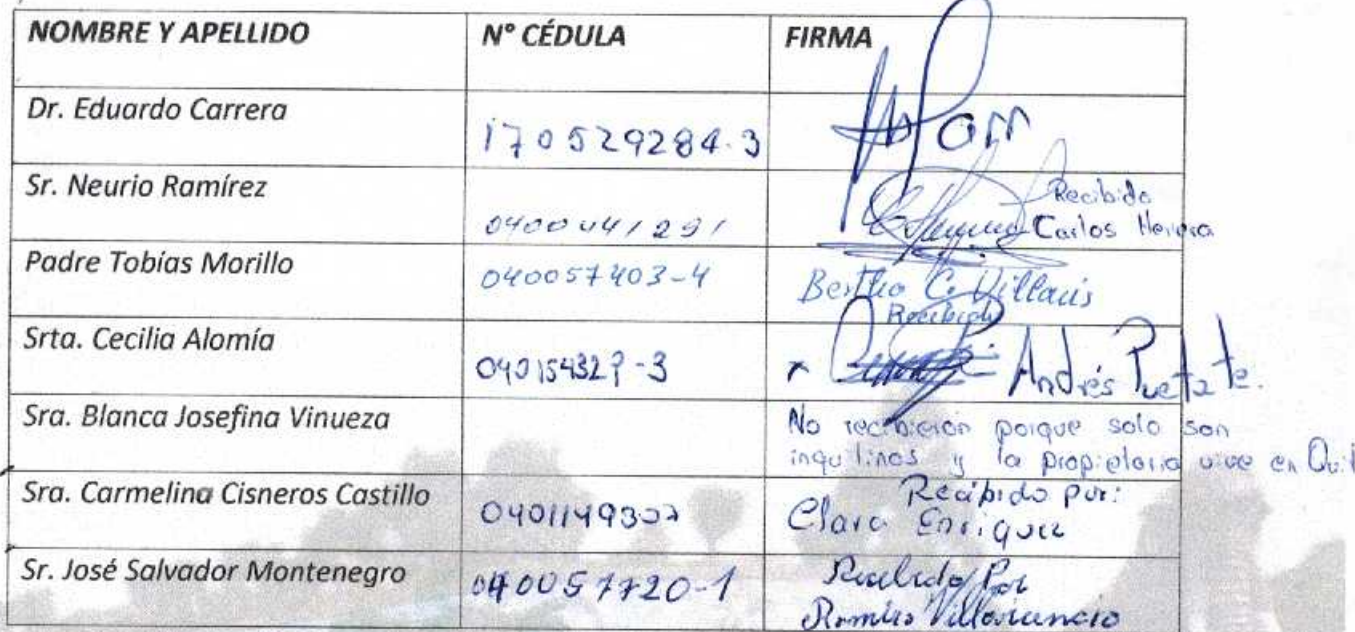 NOMBRE Y APELLIDO N° CÉDULA FIRMA
Dr. Eduardo Carrera 170529284-3
Sr. Neurio Ramírez Recibido
Carlos Herrera
Padre Tobías Morillo 040057403-4 Bertha C. Villacís
Recibido
Srta. Cecilia Alomía Andrés Puetate.
Sra. Blanca Josefina Vinueza No recibieron porque solo son
inquilinos y la propietaria vive en Quit
Sra. Carmelina Cisneros Castillo Recibido por:
Clara Enriquez
Sr. José Salvador Montenegro 040057720-1 Recibido Por